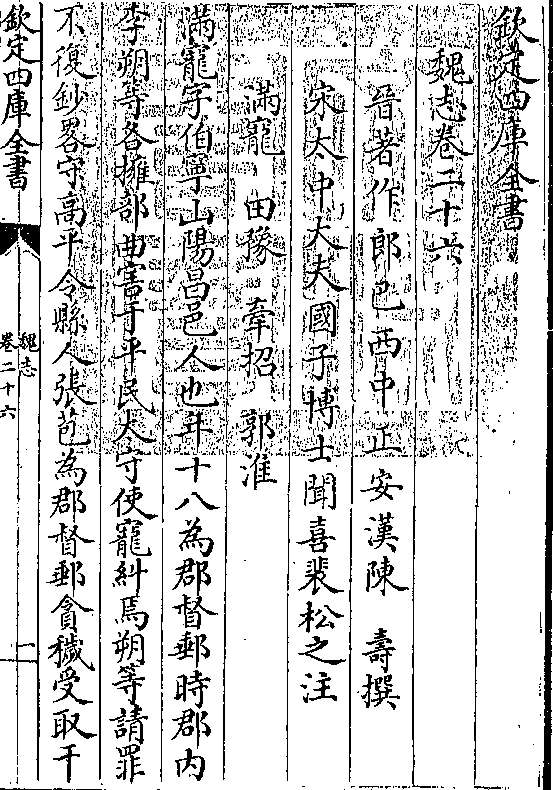 欽定四庫全書
魏志卷二十六
晉著作郎巴西中正安漢陳壽撰
宋太中大夫國子博士聞喜裴松之注
滿寵 田豫 牽招 郭淮
滿寵字伯寧山陽昌邑人也年十八為郡督郵時郡内
李朔等各擁部曲害于平民太守使寵糾焉朔等請罪
不復鈔畧守高平令縣人張苞為郡督郵貪穢受取干
欽定四庫全書
魏志
卷二十六
一